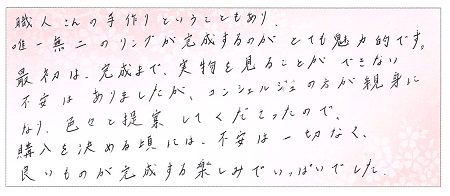 職人さんの手作りということもあり、
唯一無二のリングが完成するのがとても魅力的です。
最初は、完成まで、実物を見ることができない
不安はありましたが、コンシェルジュの方が親身に
なり、色々と提案してくださったので、
購入を決める頃には、不安は一切なく、
良いものが完成する楽しみでいっぱいでした。